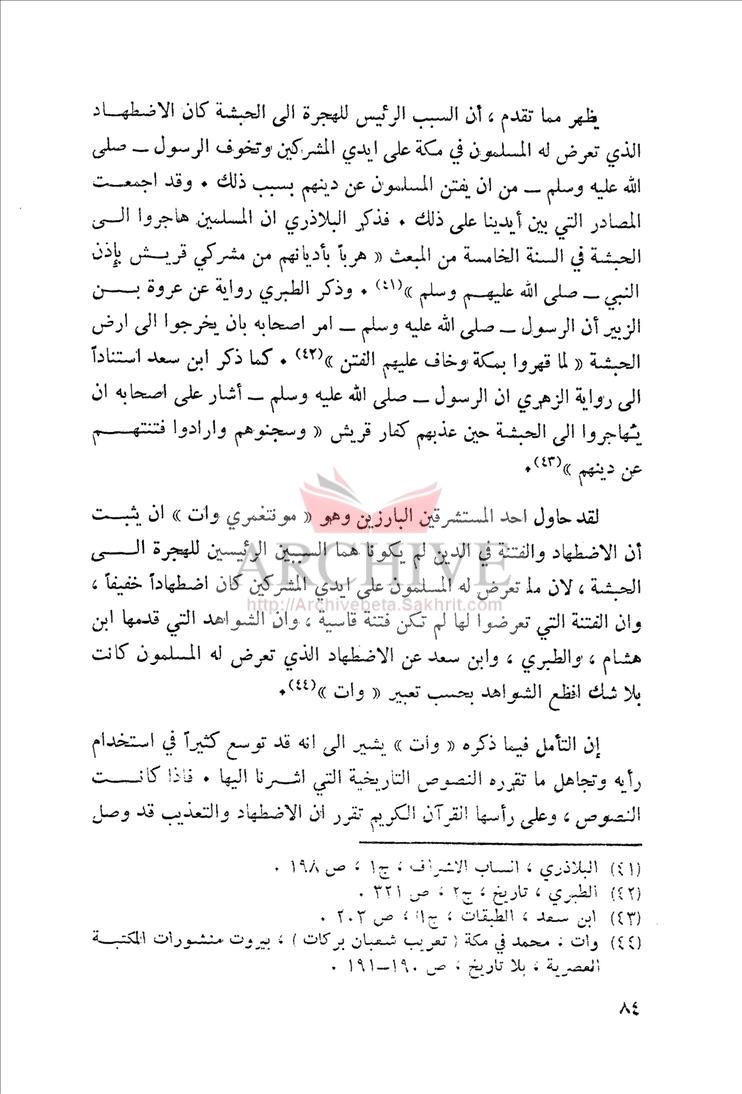 يظهر مما تقدم ، أن السبب الرئيس للهجرة الى الحبشة كان الاضطهـاد
الذي تعرض له المسلمون في مكة على ايدي المشركين وتخوف الرسول ــ صلى
الله عليه وسلم ــ من ان يفتن المسلمون عن دينهم بسبب ذلك ٠ وقد اجمعـت
المصادر التي بين أيدينا على ذلك ٠ فذكر البلاذري ان المسلمين هاجروا الـى
الحبشة في السنة الخامسة من المبعث « هرباً بأديانهم من مشركي قريـش بإذن
النبي ــ صلى الله عليهـم وسلم »(٤١) ٠ وذكر الطبري رواية عن عروة بــن
الزبير أن الرسول ــ صلى الله عليه وسلم ــ امر اصحابه بان يخرجوا الى ارض
الحبشة « لما قهروا بمكة وخاف عليهم الفتن »(٤٢) ٠ كما ذكر ابن سعد استناداً
الى رواية الزهري ان الرسول ــ صلى الله عليه وسلم ــ أشار على اصحابه ان
يهاجروا الى الحبشة حين عذبهم كفار قريش « وسجنوهم وارادوا فتنتهـم
عن دينهم »(٤٣)٠
لقد حاول احد المستشرقين البارزين وهو « مونتغمري وات » ان يثبـت
أن الاضطهاد والفتنة في الدين لم يكونا هما السببين الرئيسين للهجرة الــى
ARCHIVE
الحبشة ، لان ما تعرض له المسلمون على ايدي المشركين كان اضطهاداً خفيفاً ،
http://Archivebeta.Sakhrit.com
وان الفتنة التي تعرضوا لها لم تكن فتنة قاسية ، وان الشواهد التي قدمها ابن
هشام ، والطبري ، وابن سعد عن الاضطهاد الذي تعرض له المسلمون كانت
بلا شك افظع الشواهد بحسب تعبير « وات »(٤٤)٠
إن التأمل فيما ذكره « وات » يشير الى انه قد توسع كثيراً في استخدام
رأيه وتجاهل ما تقرره النصوص التاريخية التي اشرنا اليها ٠ فاذا كانــت
النصوص ، وعلى رأسها القرآن الكريم تقرر ان الاضطهاد والتعذيب قد وصل
(٤١) البلاذري ، انساب الاشراف ، ج١ ، ص ١٩٨ ٠
(٤٢) الطبري ، تاريخ ، ج٢ ، ص ٣٢١ ٠
(٤٣) ابن سعد ، الطبقات ، ج١ ، ص ٢٠٣ ٠
(٤٤) وات ، محمد في مكة (تعريب شعبان بركات) ، بيروت منشورات المكتبـة
العصرية ، بلا تاريخ ، ص ١٩٠ــ١٩١ ٠
٨٤